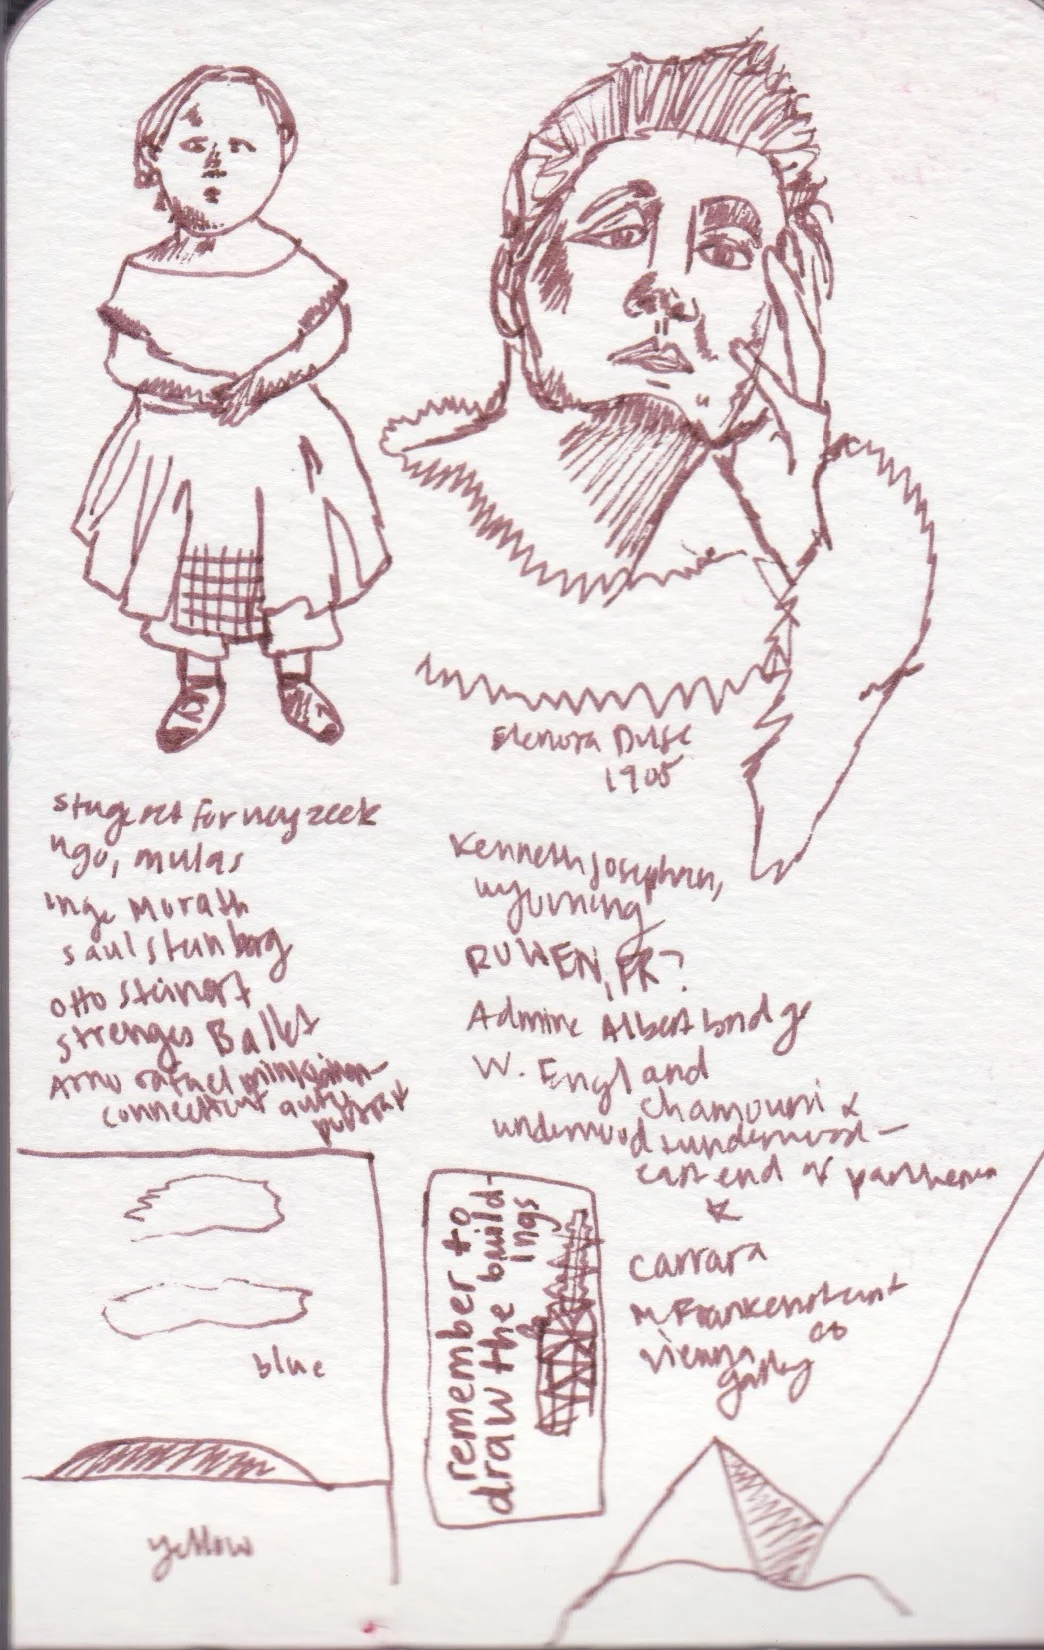 Elenora Duse
1905
stage set for woyzeck
ugo, mulas
inge morath
saul steinberg
otto steinert
Ballet
Arno rafael minkkinen-
connecticut auto
portrait
Kenneth Josephson,
wyoming
ROUEN, FR?
Admire Albert bridge
W. England
chamouni &
underwood & underwood-
east end of parthenon
Carrara
M Frankenstein &
co
vienna
gallery
blue
yellow
remember to
draw the build-
ings